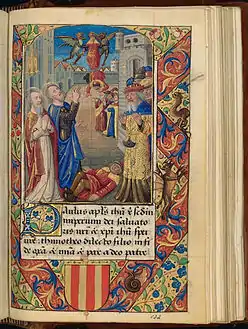 Paulus apls ihu xpi sedm
imperium dei saluato
ris nri & xpi ihu spei
nre: thimotheo dilecto filio in fi
de gra & mia & pax a deo patre